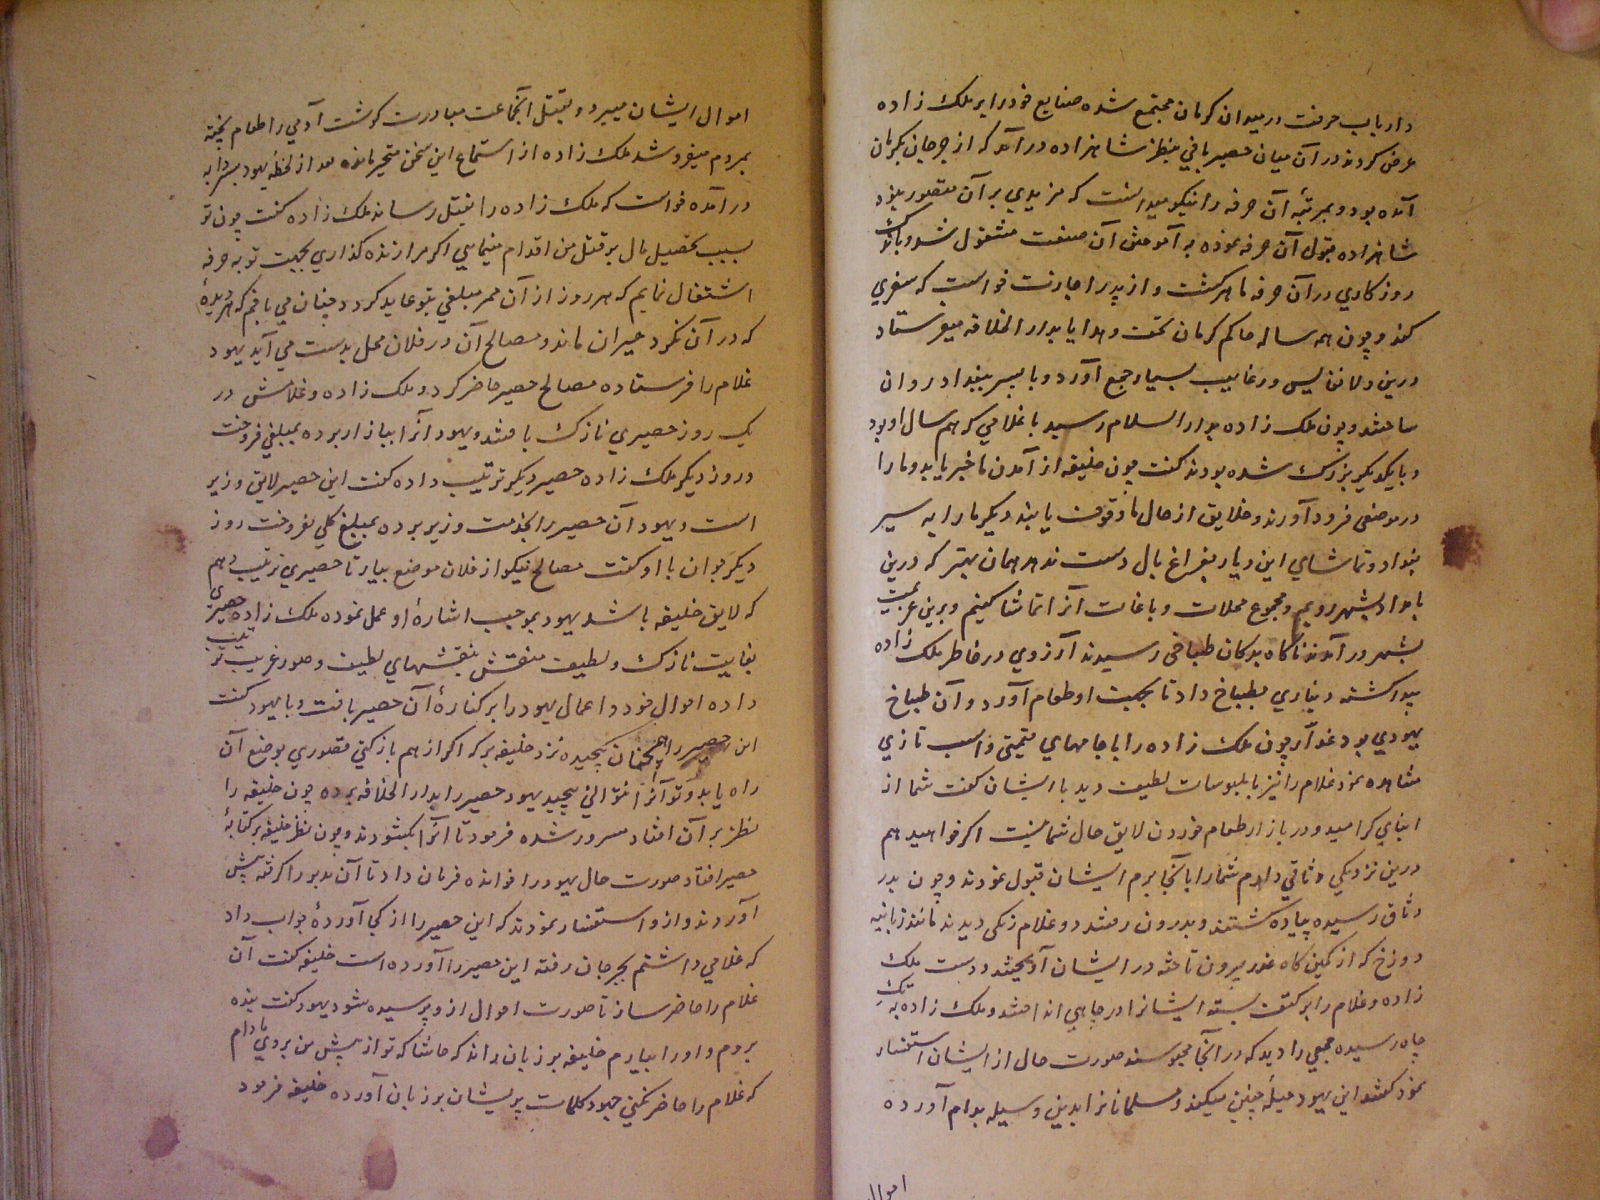 دارباب حرفت در میدان کرمان مجتمع شده صنایع خود را بر ملک زاده
عرض کردند در آن میان حصیر بافی بنظر شاهزاده در آمد که از جرجان بکرمان
آمده بود و بمرتبهٔ آن حرفه را نیکو میدانست که مزیدی بر آن متصور نبود
شاهزاده قبول آن حرفه نموده به آموختن آن صنعت مشغول شد و باندک
روزکاری در آن حرفه ماهر کشت و از پدر اجازت خواست که سفری
کند و چون همه ساله حاکم کرمان تحف و هدایا بدار الخلافه میفرستاد
درین ولا نفایس و رغایب بسیار جمع آورد و با پسر ببغداد روان
ساختند و چون ملک زاده بدار السلام رسید با غلامی که هم سال او بود
و با یکدیکر بزرک شده بودند کفت چون خلیفه از آمدن ما خبر یابد و ما را
در موضعی فرود آورند و خلایق از حال ما وقوف یابند دیکر ما را به سیر
بغداد و تماشای این دیار بفراغ بال دست ندهد همان بهتر که درین
بامداد بشهر رویم و مجموع محلات و باغات آنرا تماشا کنیم و برین عزیمت
بشهر در آمدند ناکاه بدکان طباخی رسیدند آرزوی در خاطر ملک زاده
پیدا کشته دیناری بطباخ داد تا بجهت او طعام آورد و آن طباخ
یهودی بود غدار چون ملک زاده را با جامهای قیمتی و اسب تازی
مشاهده نمود غلام را نیز با ملبوسات لطیف دید با ایشان کفت شما از
ابنای کرامید و در بازار طعام خوردن لایق حال شما نیست اکر خواهید هم
درین نزدیکی وثاقی دارم شما را بآنجا برم ایشان قبول نمودند و چون بدر
وثاق رسیده پیاده کشتند و بدرون رفتند دو غلام زنکی دیدند مانند زبانیه
دوزخ که از کمین کاه غدر بیرون تاخته در ایشان آویختند و دست ملک
زاده و غلام را بر کتف بسته ایشانرا در چاهی انداختند و ملک زاده به تک
چاه رسیده جمعی را دید که در آنجا محبوسند صورت حال از ایشان استفسار
نمود کفتند این یهود حیلهٔ چنین میکند و مسلمانانرا بدین وسیله بدام آورده
اموال
اموال ایشان میبرد و بقتل آنجماعت مبادرت کوشت آدمی را طعام پخته
بمردم میفروشد ملک زاده از استماع این سخن متحیر مانده بعد از لحظهٔ یهود بسردابه
در آمده خواست که ملک زاده را بقتل رساند ملک زاده کفت چون تو
بسبب تحصیل مال بر قتل من اقدام مینمایی اکر مرا زنده کذاری بجهت تو به حرفهٔ
اشتغال نمایم که هر روز از آن ممر مبلغی بتو عاید کردد و چنان می بافم که هر دیدهٔ
که در آن نکرد حیران ماند و مصالح آن در فلان محل بدست می آید یهود
غلام را فرستاده مصالح حصیر حاضر کرد و ملک زاده و غلامش در
یک روز حصیری نازک بافتند و یهود آنرا ببازار برده بمبلغی فروخت
و روز دیکر ملک زاده حصیر دیکر ترتیب داده کفت این حصیر لایق وزیر
است و یهود آن حصیر را بخدمت وزیر برده بمبلغ کلی بفروخت روز
دیکر جوان با او کفت مصالح نیکو از فلان موضع بیار تا حصیری ترتیب دهم
که لایق خلیفه باشد یهود بموجب اشارهٔ او عمل نموده ملک زاده حصیری
بغایت نازک و لطیف منقش بنقشهای لطیف و صور غریب ترتیب
داده احوال خود و اعمال یهود را بر کنارهٔ آن حصیر بافت و با یهود کفت
این حصیر را همچنان پیچیده نزد خلیفه بر که اکر از هم باز کنی قصوری بوضع آن
راه یابد و تو آنرا نتوانی پیچید یهود حصیر را بدار الخلافه برده چون خلیفه را
نظر بر آن افتاد مسرور شده فرمود تا آنرا بکشودند و چون نظر خلیفه بر کتابهٔ
حصیر افتاد صورت حال یهود را خوانده فرمان داد تا آن مدبر را کرفته پیش
آوردند و از و استفسار نمودند که این حصیر را از کجا آوردهٔ جواب داد
که غلامی داشتم بجرجان رفته این حصیر را آورده است خلیفه کفت آن
غلام را حاضر ساز تا صورت احوال از و پرسیده شود یهود کفت بنده
بروم و او را بیارم خلیفه بر زبان راند که حاشا که تو از پیش من بروی مادام
که غلام را حاضر نکنی جهود کلمات پریشان بر زبان آورده خلیفه فرمود